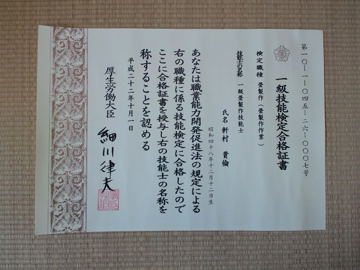 第一〇-一-〇四五-二六-〇〇〇七号
一級技能検定合格証書
検定職種 畳製作(畳製作作業)
技能士の名称 一級畳製作技能士
氏名 軒村 貴倫
昭和四十八年十二月十二日生
あなたは職業能力開発促進法の規定による
右の職種に係る技能検定に合格したので
ここに合格証書を授与し右の技能士の名称を
称することを認める
平成二十二年十月一日
厚生労働大臣
細川律夫